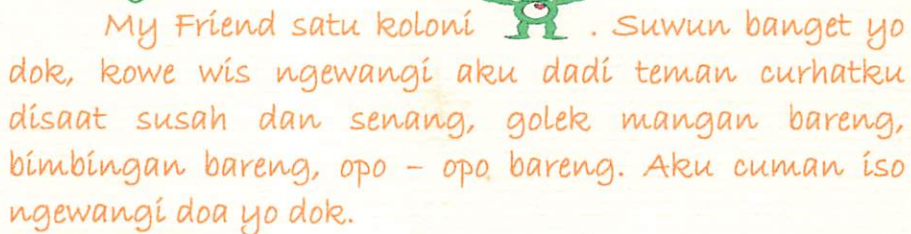 My Friend satu koloni . Suwun banget yo
dok, kowe wis ngewangi aku dadi teman curhatku
disaat susah dan senang, golek mangan bareng,
bimbingan bareng, opo – opo bareng. Aku cuman iso
ngewangi doa yo dok.